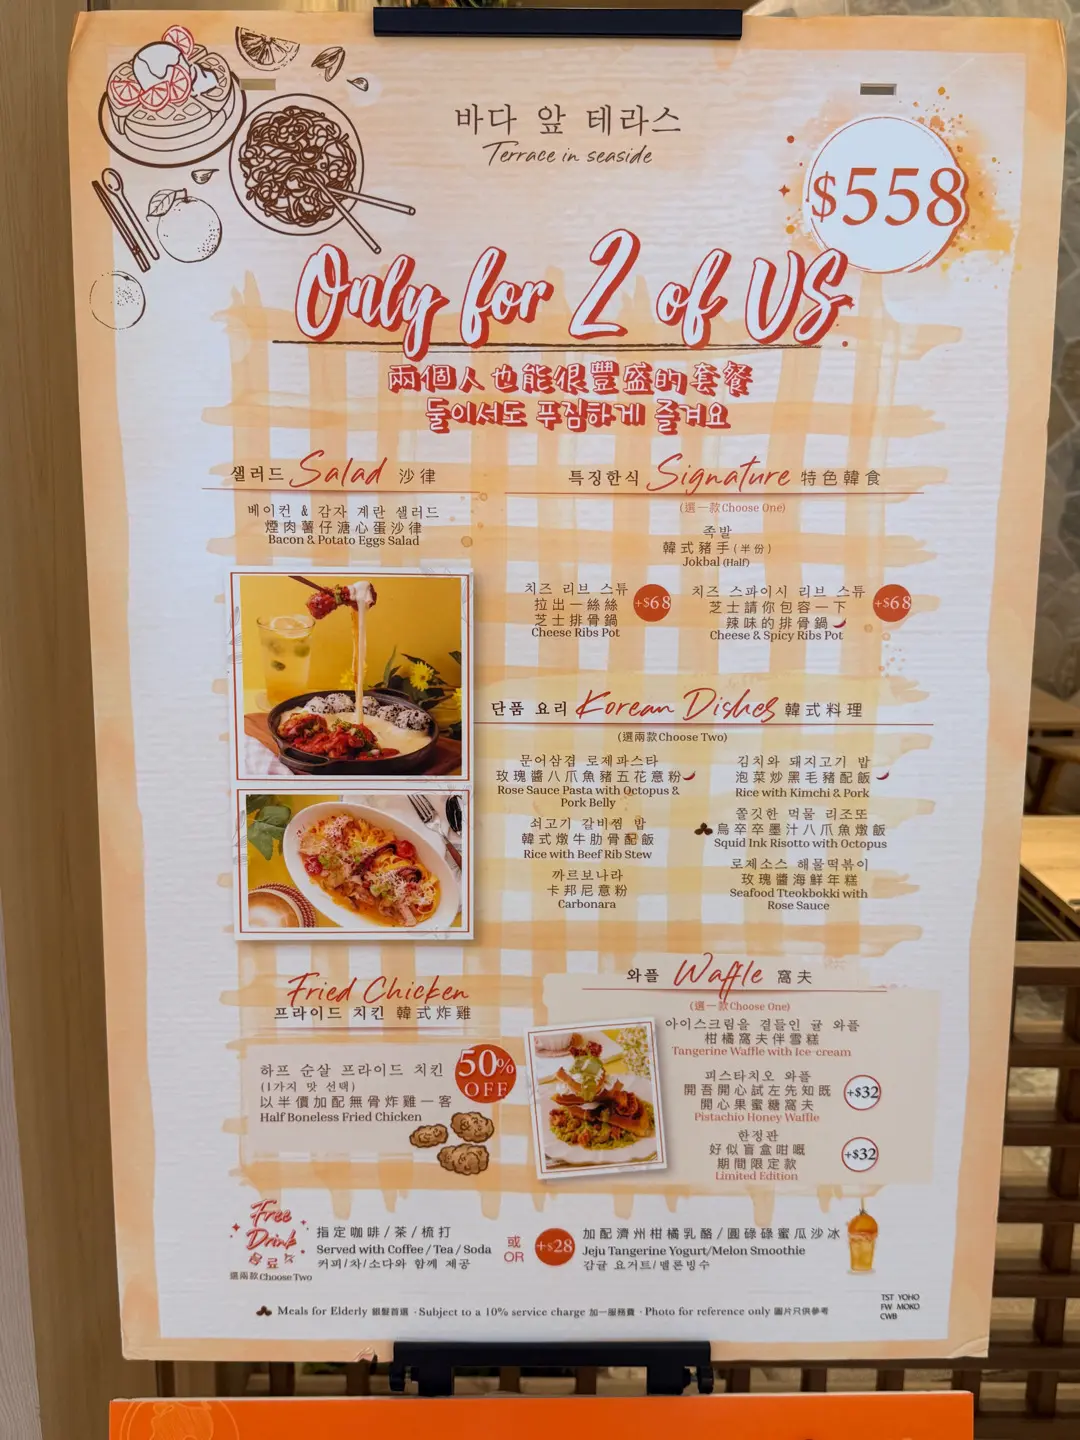 바다 앞 테라스
Terrace in seaside
$558
Only for 2 of US
兩個人也能很豐盛的套餐
둘이서도 푸짐하게 즐겨요
샐러드 Salad 沙律
베이컨 & 감자 계란 샐러드
煙肉薯仔溏心蛋沙律
Bacon & Potato Eggs Salad
특징한식 Signature 特色韓食
(選一款Choose One)
족발
韓式豬手(半份)
Jokbal (Half)
치즈 리브 스튜
拉出一絲絲
芝士排骨鍋
Cheese Ribs Pot
+$68
치즈 스파이시 리브 스튜
芝士請你包容一下
辣味的排骨鍋
Cheese & Spicy Ribs Pot
+$68
단품 요리 Korean Dishes 韓式料理
(選兩款Choose Two)
문어삼겹 로제파스타
玫瑰醬八爪魚豬五花意粉
Rose Sauce Pasta with Octopus &
Pork Belly
쇠고기 갈비찜 밥
韓式燉牛肋骨配飯
Rice with Beef Rib Stew
까르보나라
卡邦尼意粉
Carbonara
김치와 돼지고기 밥
泡菜炒黑毛豬配飯
Rice with Kimchi & Pork
쫄깃한 먹물 리조또
烏卒卒墨汁八爪魚燉飯
Squid Ink Risotto with Octopus
로제소스 해물떡볶이
玫瑰醬海鮮年糕
Seafood Tteokbokki with
Rose Sauce
Fried Chicken
프라이드 치킨 韓式炸雞
하프 순살 프라이드 치킨
(1가지 맛 선택)
以半價加配無骨炸雞一客
Half Boneless Fried Chicken
50%
OFF
와플 Waffle 窩夫
(選一款Choose One)
아이스크림을 곁들인 귤 와플
柑橘窩夫伴雪糕
Tangerine Waffle with Ice-cream
피스타치오 와플
開吾開心試左先知既
開心果蜜糖窩夫
Pistachio Honey Waffle
+$32
한정판
好似盲盒咁嘅
期間限定款
Limited Edition
+$32
Free
Drink
選兩款Choose Two
指定咖啡/茶/梳打
Served with Coffee / Tea / Soda
커피/차/소다와 함께 제공
或
OR
+$28
加配濟州柑橘乳酪/圓碌碌蜜瓜沙冰
Jeju Tangerine Yogurt/Melon Smoothie
감귤 요거트/멜론빙수
Meals for Elderly 銀髮首選 · Subject to a 10% service charge 加一服務費 · Photo for reference only 圖片只供參考
TST YOHO
FW MOKO
CWB